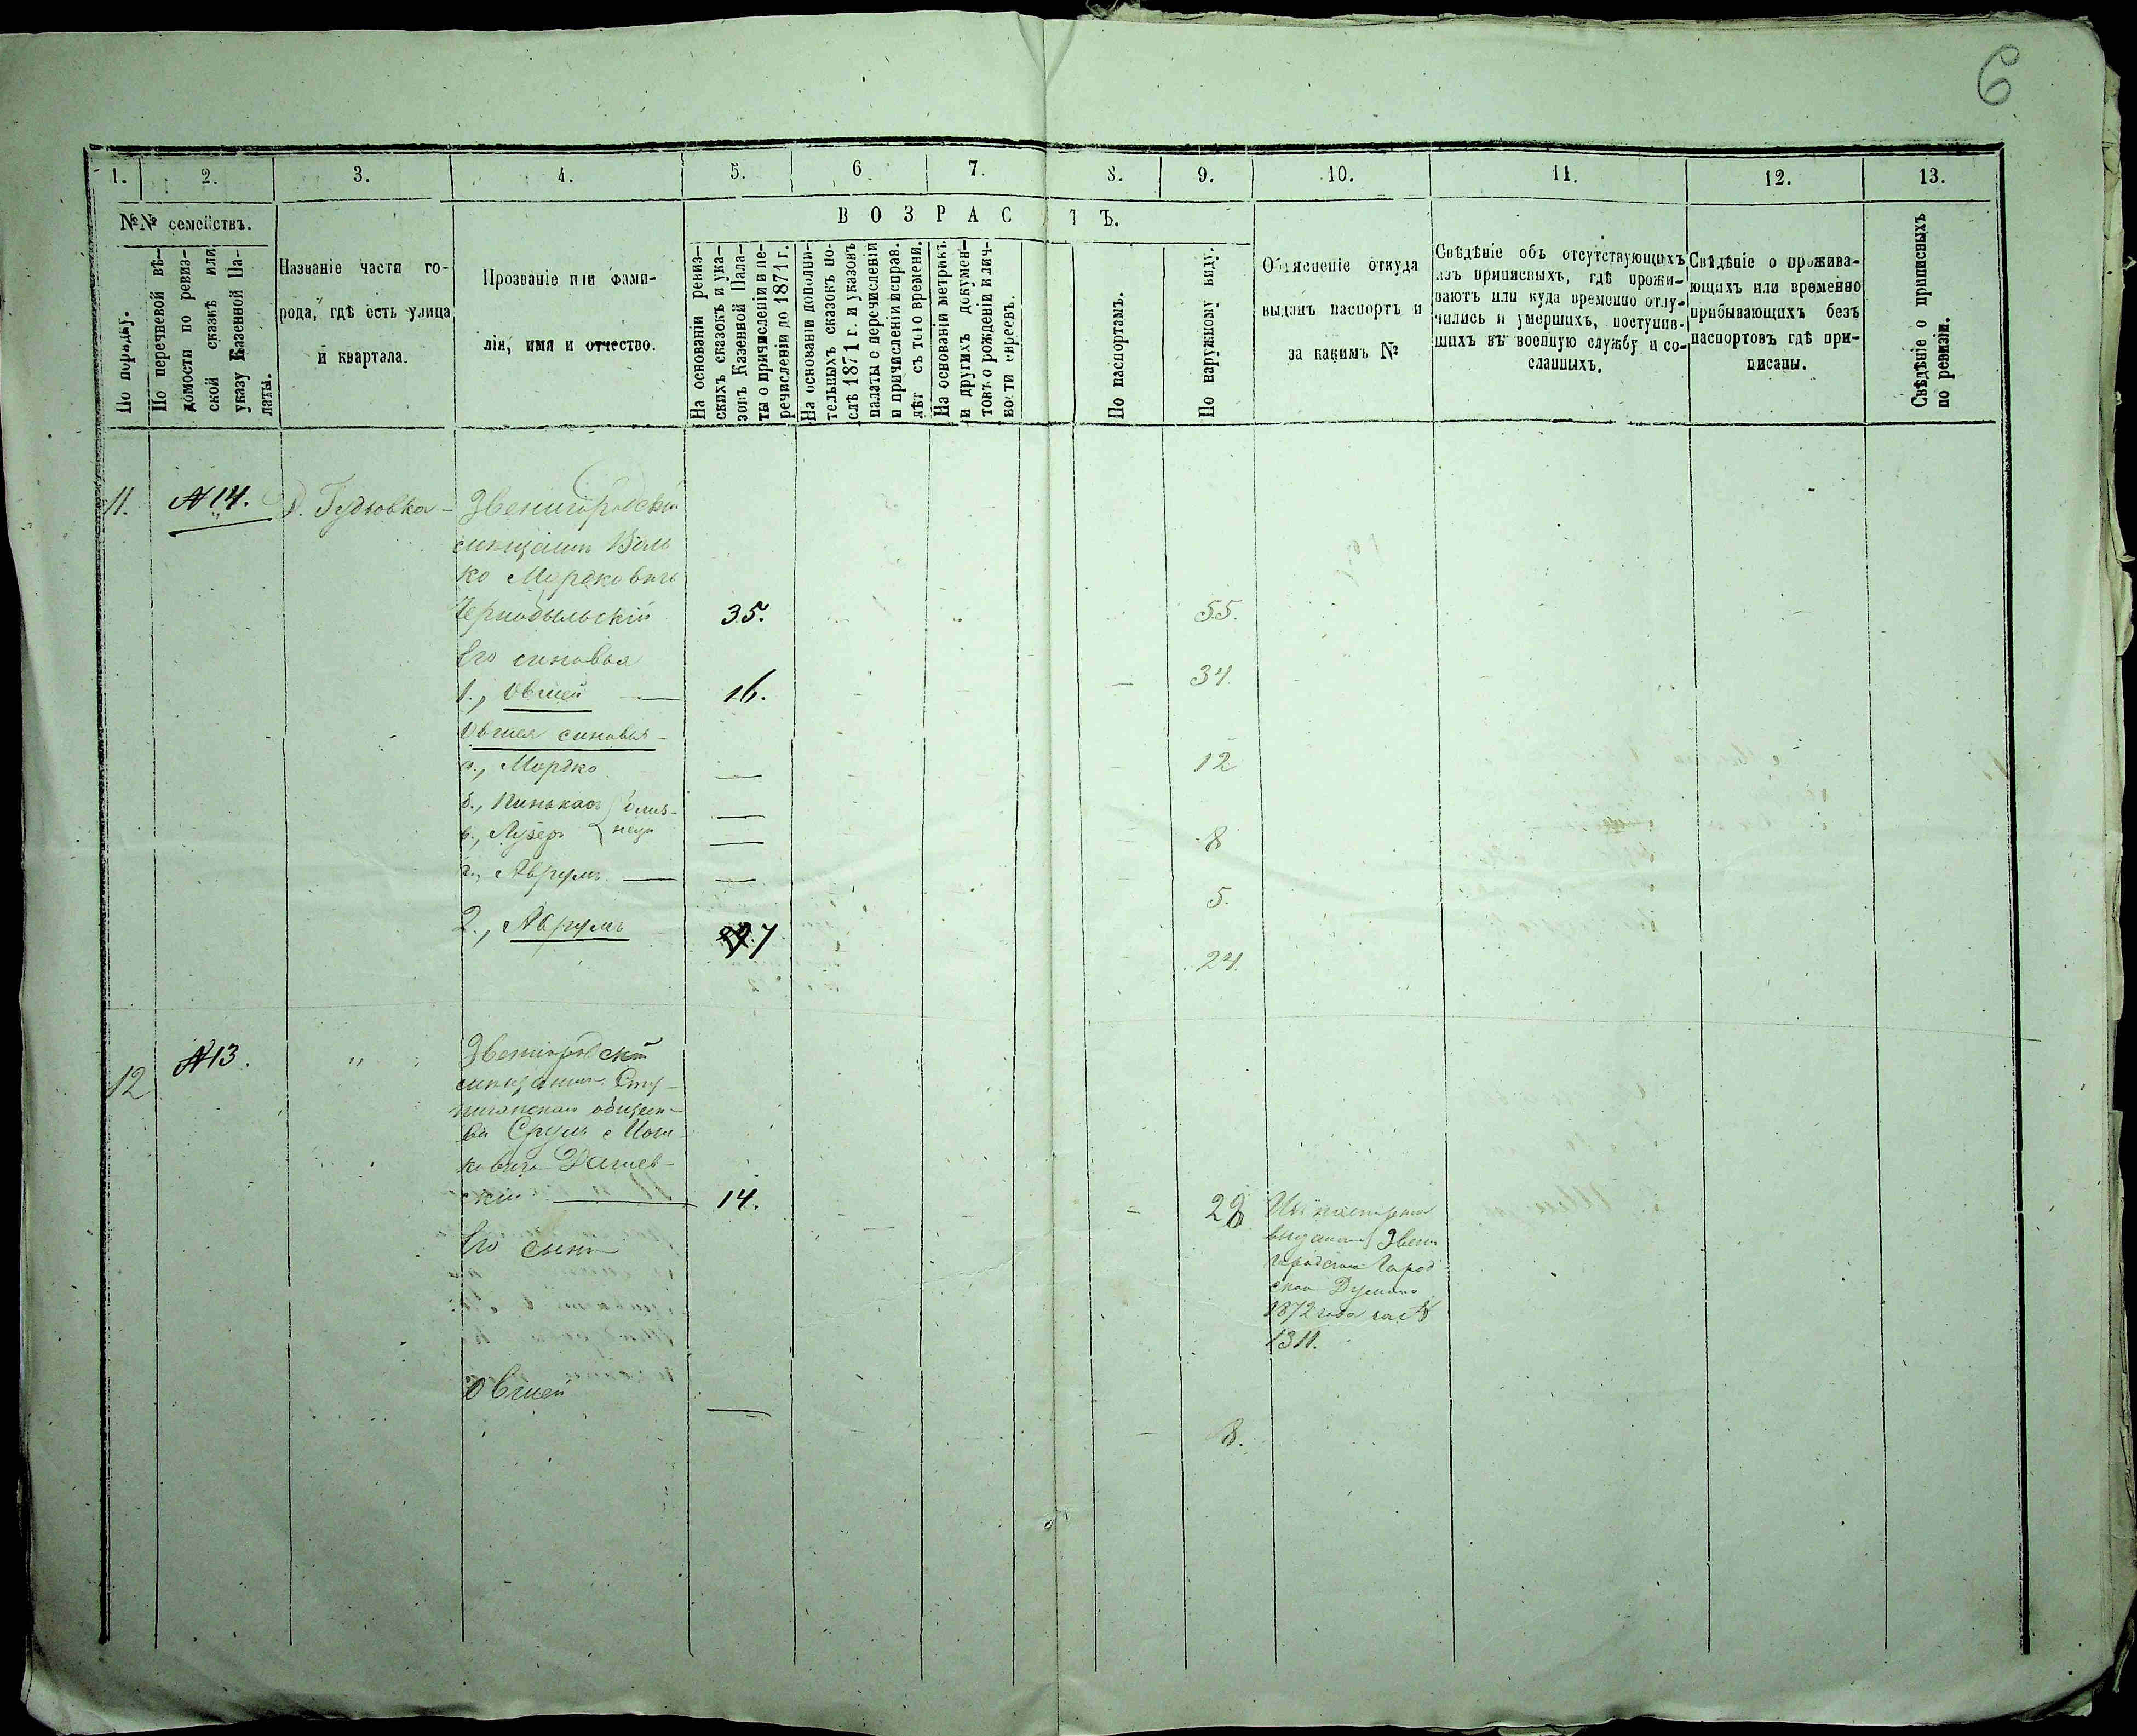 6
1. 2. 3. 4. 5. 6 7. 8. 9. 10. 11. 12. 13.
№№ семействъ.
В О З Р А С Т Ъ.
По порядку.
По перечневой вѣ-
домости по ревиз-
ской сказкѣ или
указу Казенной Па-
латы.
Названіе части го-
рода, гдѣ есть улица
и квартала.
Прозваніе или фами-
лія, имя и отчество.
На основаніи ревиз-
скихъ сказокъ и ука-
зовъ Казенной Пала-
ты о причисленіи и пе-
речисленіи до 1871 г.
На основаніи дополни-
тельныхъ сказокъ по-
слѣ 1871 г. и указовъ
палаты о перечисленіи
и причисленіи исправ.
лѣт съ того времени.
На основаніи метрикъ
и другихъ докумен-
товъ о рожденіи и лич-
ности евреевъ.
По паспортамъ.
По наружному виду.
Объясненіе откуда
выданъ паспортъ и
за какимъ №
Свѣдѣніе объ отсутствующихъ
изъ приписныхъ, гдѣ прожи-
ваютъ или куда временно отлу-
чились и умершихъ, поступив-
шихъ въ военную службу и со-
сланныхъ.
Свѣдѣніе о прожива-
ющихъ или временно
прибывающихъ безъ
паспортовъ гдѣ при-
писаны.
Свѣдѣніе о приписныхъ
по ревизіи.
11. №14. Д. Гудзовка - Звенигородскій
мещанинъ Воль
ко Мордковичъ
Чернобыльскій 35. 55.
Его синовья
1., Овшей 16. 34.
Овшея синовья -
а., Мордко 12
б., Пинькасъ близ-
в., Лузеръ нецы 8
г., Аврумъ 5.
2., Аврумъ 7 24.
12 №13. " Звенигородскій
мещанинъ
общест-
ва Сруль Иось
ковичъ Дашев-
скій 14. 28
Его сынъ
Овшей 8.
выданъ Звени
городскою Город
скою Думою
1872 года за №
1311.